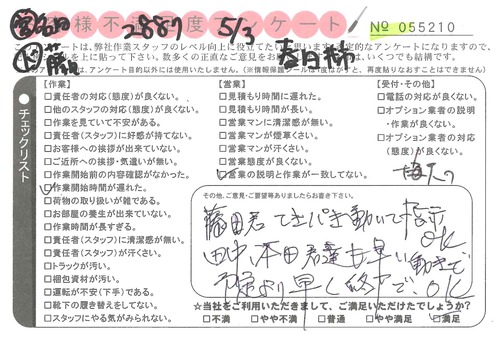 お客様不満足度アンケート
2887 5/3
№ 055210
このアンケートは、弊社作業スタッフのレベル向上に役立てたいと思います。否定的なアンケートになりますので、
の上に貼って下さい。数多くの正直なご意見をお
は、いくつでも結構です。
は、アンケート目的以外には使用いたしません。
春日
【作業】
□責任者の対応(態度)が良くない。
□他のスタッフの対応(態度)が良くない。
□作業を見ていて不安がある。
□責任者(スタッフ)に好感が持てない。
□お客様への挨拶が出来ていない。
□ご近所への挨拶・気遣いが無い。
□作業開始前の内容確認がなかった。
□作業開始時間が遅れた。
□荷物の取り扱いが雑である。
□お部屋の養生が出来ていない。
□作業時間が長すぎる。
□責任者(スタッフ)に清潔感が無い。
□責任者(スタッフ)が汗くさい。
□トラックが汚い。
□梱包資材が汚い。
□運転が不安(下手)である。
□靴下の履き替えをしてない。
□スタッフにやる気がみられない。
チェックリスト
【営業】
□見積もり時間に遅れた。
□見積もり時間が長い。
□営業マンに清潔感が無い。
□営業マンが煙草くさい。
□営業マンが汗くさい。
□営業態度が良くない。
□営業の説明と作業が一致してない。
【受付・その他】
□電話の対応が良くない。
□オプション業者の説明
・作業が良くない。
□オプション業者の対応
(態度)が良くない。
その他、ご意見・ご要望等ありましたらお書き下さい。
藤田君 てきぱき動いて指示
OK
田中、本田君達も早い動きで
予定より早く終って、OK
☆当社をご利用いただきまして、ご満足いただけたでしょうか?
□不満 □やや不満 □普通 □やや満足 □満足